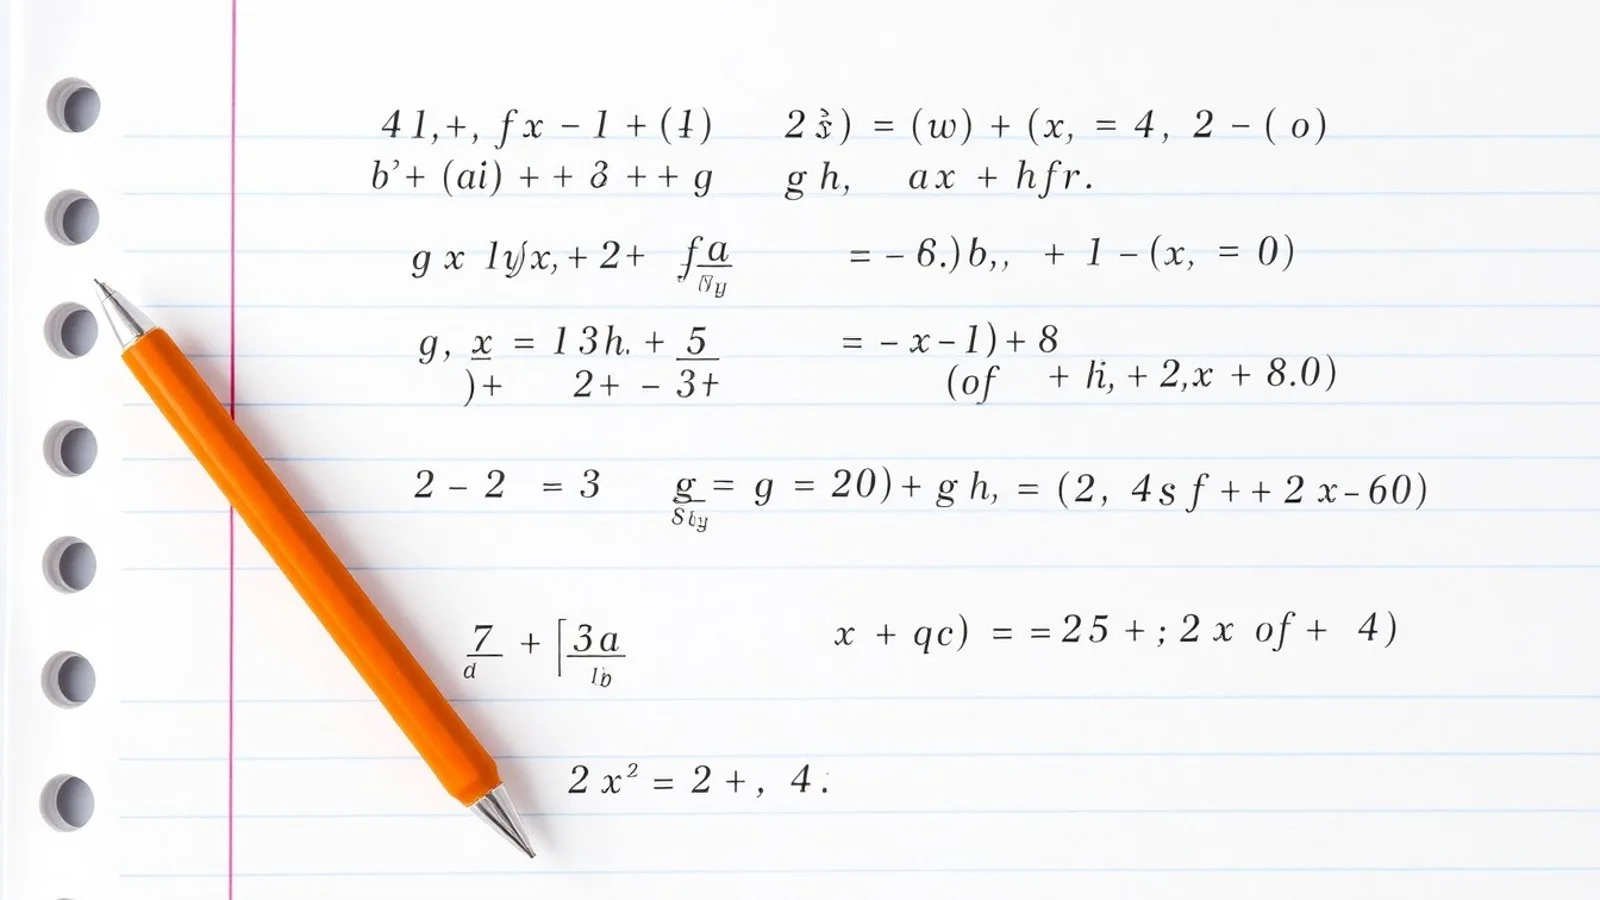 41,+, fx - 1 + (1) 2 ) = (w) + (x, = 4, 2 - ( o)
b’+ (ai) + + 3 + + g gh, ax + hfr.
g x 1y/x, + 2 + fa = - 6.)b,, + 1 - (x, = 0)
y
g, x = 13h. + 5 = - x - 1) + 8
)+ 2+ - 3+ (of + h, + 2,x + 8.0)
2 - 2 = 3 g = g = 20) + gh, = (2, 4s f + + 2 x - 60)
7 + [3a x + qc) = = 25 + ; 2 x of + 4)
d 1b
2x² = 2 + , 4.